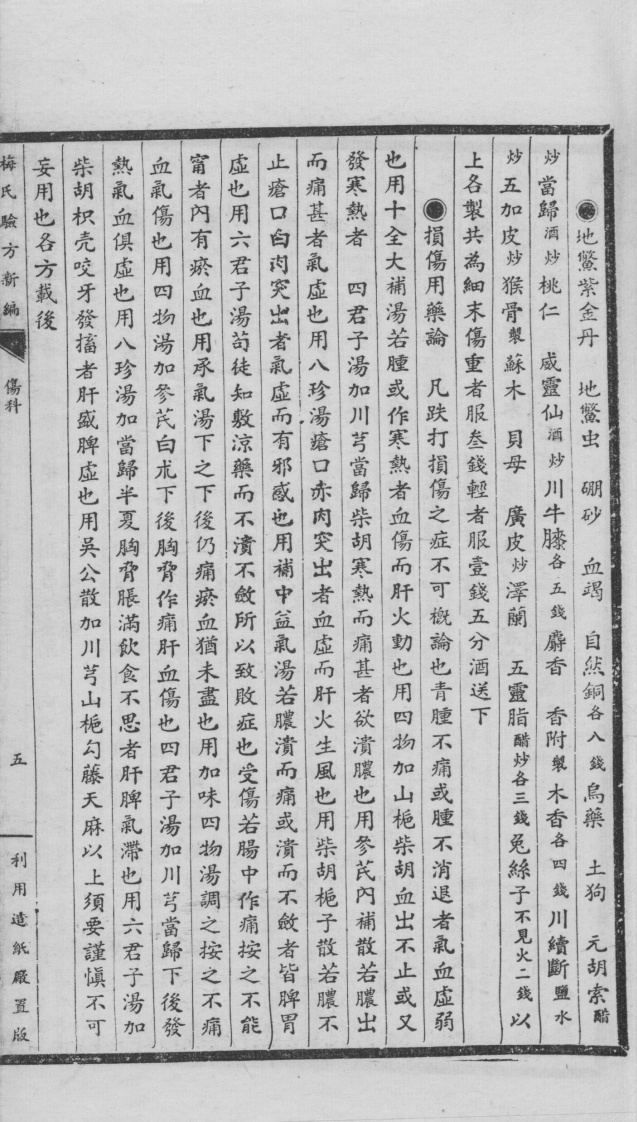 ●地鱉紫金丹　地鱉虫　硼砂　血竭　自然銅各八錢烏藥　土狗　元胡索醋
炒當歸酒炒桃仁　威靈仙酒炒川牛膝各五錢麝香　香附製木香各四錢川續斷鹽水
炒五加皮炒猴骨製蘇木　貝母　廣皮炒澤蘭　五靈脂醋炒各三錢兔絲子不見火二錢以
上各製共為細末傷重者服叁錢輕者服壹錢五分酒送下
●損傷用藥論　凡跌打損傷之症不可概論也青腫不痛或腫不消退者氣血虛弱
也用十全大補湯若腫或作寒熱者血傷而肝火動也用四物加山梔柴胡血出不止或又
發寒熱者　四君子湯加川芎當歸柴胡寒熱而痛甚者欲潰膿也用參芪內補散若膿出
而痛甚者氣虛也用八珍湯瘡口赤肉突出者血虛而肝火生風也用柴胡梔子散若膿不
止瘡口白肉突出者氣虛而有邪感也用補中益氣湯若膿潰而痛或潰而不斂者皆脾胃
虛也用六君子湯苟徒知敷涼藥而不潰不斂所以致敗症也受傷若腸中作痛按之不能
甯者內有瘀血也用承氣湯下之下後仍痛瘀血猶未盡也用加味四物湯調之按之不痛
血氣傷也用四物湯加參芪白朮下後胸脅作痛肝血傷也四君子湯加川芎當歸下後發
熱氣血俱虛也用八珍湯加當歸半夏胸脅脹滿飲食不思者肝脾氣滯也用六君子湯加
柴胡枳壳咬牙發搐者肝盛脾虛也用吳公散加川芎山梔勾藤天麻以上須要謹愼不可
妄用也各方載後
梅氏驗方新編　傷科　五　利用造紙厰置版